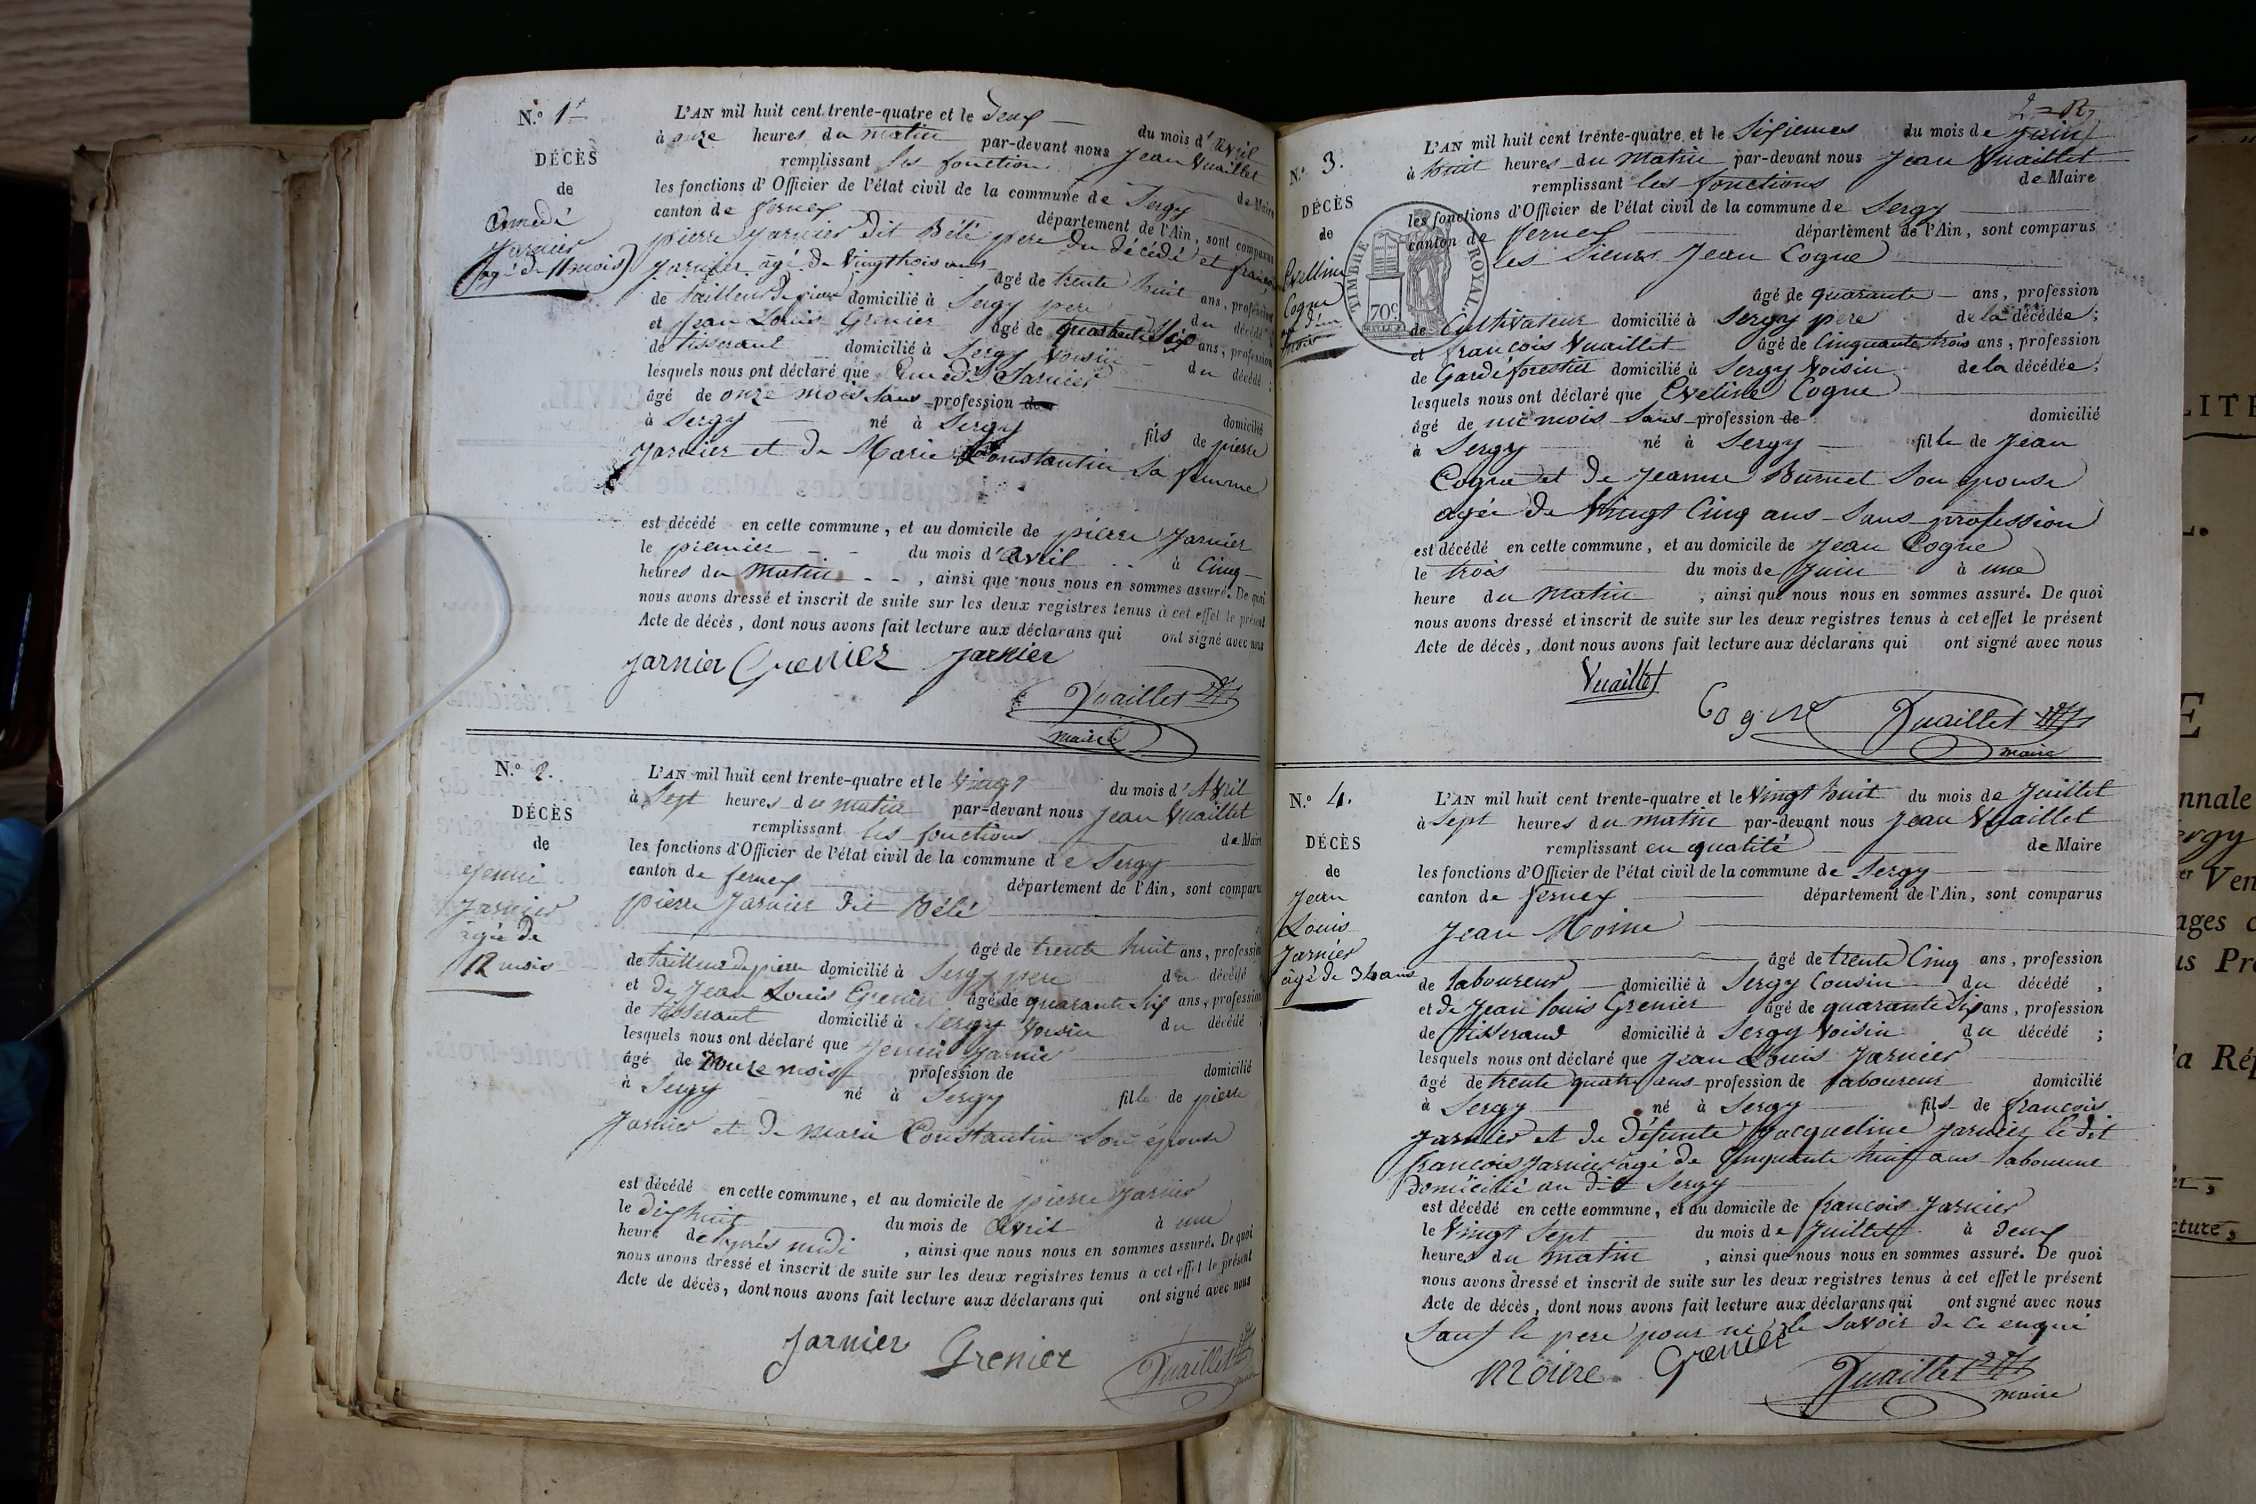 N.o 1er
DÉCÈS
de
Amedé
Jarnier
âgé de 11 mois
L'AN mil huit cent trente-quatre et le deux du mois d'avril
à onze heures du matin par-devant nous Jean Vuaillet
remplissant les fonction de Maire
les fonctions d'Officier de l'état civil de la commune de Sergy
canton de fernex département de l'Ain, sont comparus
pierre Jarnier dit Bélé pere du décédé et françois
Jarnier âgé de Vingt trois ans
âgé de trente huit ans, profession
de tailleur de pierre domicilié à Sergy pere du décédé
et Jean Louis Grenier âgé de quarante Six ans, profession
de tisserant domicilié à Sergy Voisin du décédé ;
lesquels nous ont déclaré que Amedé Jarnier
âgé de onze mois sans profession de domicilié
à Sergy né à Sergy fils de pierre
Jarnier et de Marie Constantin Sa femme
est décédé en cette commune, et au domicile de pierre Jarnier
le premier du mois d'avril à Cinq
heures du matin, ainsi que nous nous en sommes assuré. De quoi
nous avons dressé et inscrit de suite sur les deux registres tenus à cet effet le présent
Acte de décès, dont nous avons fait lecture aux déclarans qui ont signé avec nous
Jarnier Grenier Jarnier
Vuaillet
maire
N.o 2.
DÉCÈS
de
Jenni
Jarnier
âgée de
12 mois
L'AN mil huit cent trente-quatre et le Vingt du mois d'Avril
à Sept heures du matin par-devant nous Jean Vuaillet
remplissant les fonctions de Maire
les fonctions d'Officier de l'état civil de la commune de Sergy
canton de fernex département de l'Ain, sont comparu
pierre Jarnier dit Bélé
âgé de trente huit ans, profession
de tailleur de pierre domicilié à Sergy pere du décédé
et de Jean Louis Grenier âgé de quarante Six ans, profession
de tisserant domicilié à Sergy Voisin du décédé ;
lesquels nous ont déclaré que Jenni Jarnier
âgé de Douze mois profession de domicilié
à Sergy né à Sergy fille de pierre
Jarnier et de Marie Constantin Son épouse
est décédé en cette commune, et au domicile de pierre Jarnier
le dix huit du mois de avril à une
heure de après midi, ainsi que nous nous en sommes assuré. De quoi
nous avons dressé et inscrit de suite sur les deux registres tenus à cet effet le présent
Acte de décès, dont nous avons fait lecture aux déclarans qui ont signé avec nous
Jarnier Grenier
Vuaillet
N.o 3.
DÉCÈS
de
Evelline
Cogne
TIMBRE ROYAL
70c
L'AN mil huit cent trente-quatre et le Sixiemes du mois de Juin
à huit heures du matin par-devant nous Jean Vuaillet
remplissant les fonctions de Maire
les fonctions d'Officier de l'état civil de la commune de Sergy
canton de fernex département de l'Ain, sont comparus
les Sieurs Jean Cogne
âgé de quarante ans, profession
de Cultivateur domicilié à Sergy pere de la décédée ;
et françois Vuaillet âgé de Cinquante trois ans, profession
de Garde forestier domicilié à Sergy Voisin de la décédée ;
lesquels nous ont déclaré que Eveline Cogne
âgé de un mois Sans profession de domicilié
à Sergy né à Sergy fille de Jean
Cogne et de Jeanne Burnet Son épouse
agée de Vingt Cinq ans Sans profession
est décédé en cette commune, et au domicile de Jean Cogne
le trois du mois de Juin à une
heure du matin, ainsi que nous nous en sommes assuré. De quoi
nous avons dressé et inscrit de suite sur les deux registres tenus à cet effet le présent
Acte de décès, dont nous avons fait lecture aux déclarans qui ont signé avec nous
Vuaillet
Cogne Vuaillet
maire
N.o 4.
DÉCÈS
de
Jean
Louis
Jarnier
âgé de 34 ans
L'AN mil huit cent trente-quatre et le Vingt huit du mois de Juillet
à Sept heures du matin par-devant nous Jean Vuaillet
remplissant en qualité de Maire
les fonctions d'Officier de l'état civil de la commune de Sergy
canton de fernex département de l'Ain, sont comparus
Jean Moine
âgé de trente Cinq ans, profession
de laboureur domicilié à Sergy Cousin du décédé ,
et de Jean louis Grenier âgé de quarante Six ans, profession
de tisserand domicilié à Sergy Voisin du décédé ;
lesquels nous ont déclaré que Jean Louis Jarnier
âgé de trente quatre ans profession de laboureur domicilié
à Sergy né à Sergy fils de françois
Jarnier et de défunte Jacqueline Jarnier le dit
françois Jarnier âgé de Cinquante huit ans laboureur
domicilié au dit Sergy
est décédé en cette commune, et au domicile de françois Jarnier
le Vingt Sept du mois de Juillet à deux
heures du matin, ainsi que nous nous en sommes assuré. De quoi
nous avons dressé et inscrit de suite sur les deux registres tenus à cet effet le présent
Acte de décès, dont nous avons fait lecture aux déclarans qui ont signé avec nous
Sauf le pere pour ne le Savoir de ce enqui
Moine Grenier
Vuaillet
maire